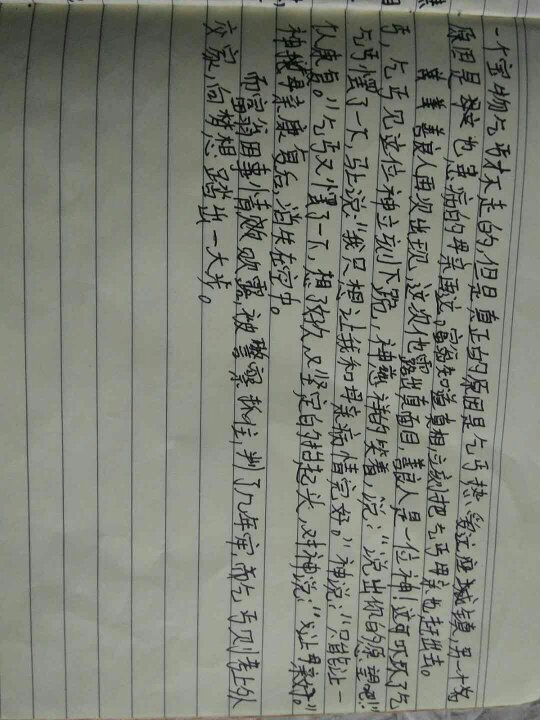 一个宝物乞丐才不走的，但是真正的原因是乞丐热爱这座城镇，另一个的
原因是患病的母亲在这。富爸知道真相立刻把乞丐母亲也赶出去。
善良人再次出现，这次他露出真面目，善良人是一位神！这可吓坏了乞
丐，乞丐见这位神立刻下跪，神慈祥的笑着，说：“说出你的愿望吧！”
乞丐愣了一下，马上说：“我只想让我和母亲病情完好。”神说：“只能让一
人康复。”乞丐又愣了一下，想了很久，又坚定的抬起头，对神说：“让母亲好。”
神把母亲康复后，消失在空中。
而富爸因事情败露，被警察抓住，判了几年牢，而乞丐则考上外
交家，向梦想踏出一大步。